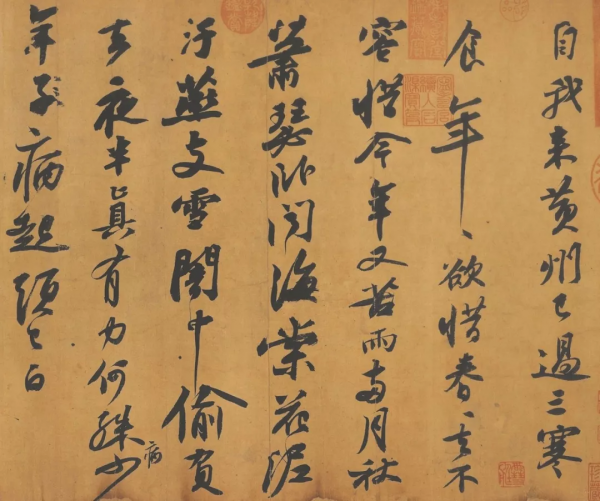 自我来黄州已過三寒
食年〻欲惜春〻去不
容惜今年又苦雨兩月秋
蕭瑟卧聞海棠花泥
汙燕支雪闇中偷負
去夜半真有力何殊少病
年子〻病起頭已白